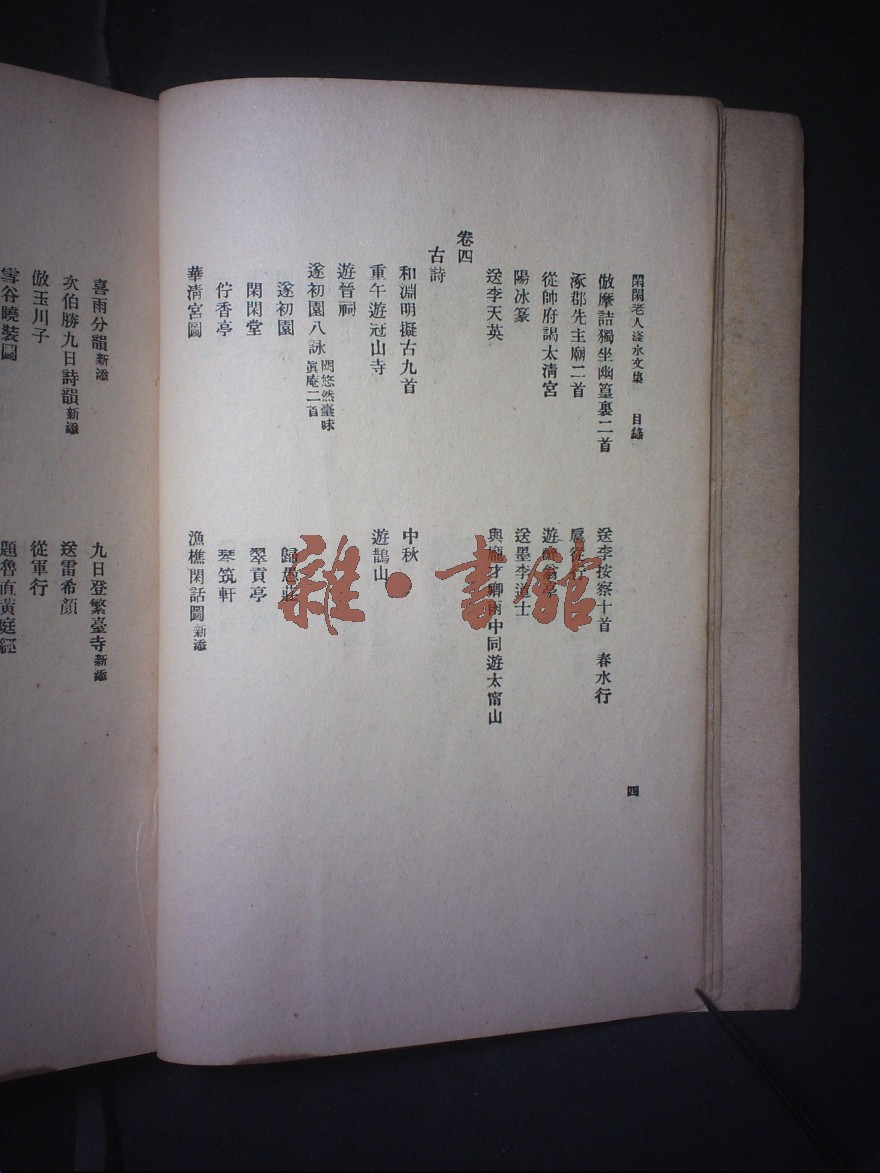 閑閑老人滏水文集 目錄 四
倣摩詰獨坐幽篁裏二首 送李按察十首 春水行
涿郡先主廟二首 扈從行
從帥府謁太清宮 遊
陽冰篆 送墨李道士
送李天英 與龐才卿雨中同遊太甯山
卷四
古詩
和淵明擬古九首 中秋
重午遊冠山寺 遊鵲山
遊晉祠
遂初園八詠 閱悠然臺味眞庵二首
遂初園 歸愚莊
閑閑堂 翠貢亭
佇香亭 琴筑軒
華清宮圖 漁樵閑話圖新添
喜雨分韻新添 九日登繁臺寺新添
次伯勝九日詩韻新添 送雷希顏
倣玉川子 從軍行
雪谷曉裝圖 題魯直黃庭經
雜·書館